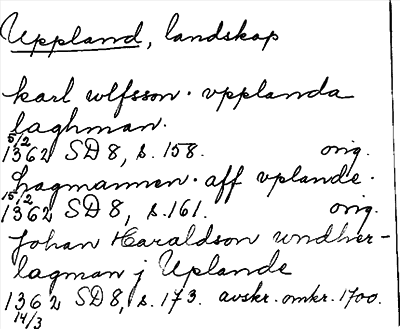 Uppland, landskap
karl wlfsson · vpplanda
laghman.
5/2
1362 SD 8, s. 158. orig.
hagmannen · aff vplande ·
15/2
1362 SD 8, s. 161. orig.
Johan Haraldson wndher-
lagman j Uplande
1362 SD 8, s. 173. avskr. omkr. 1700.
14/3